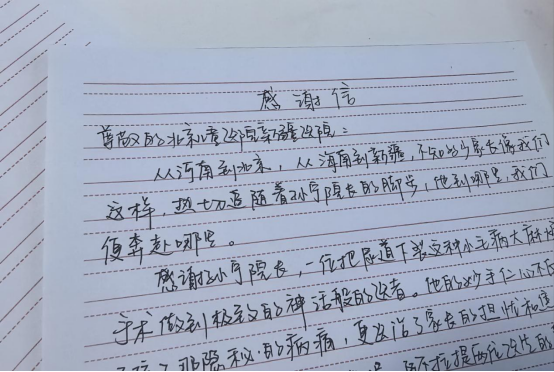 感谢信
尊敬的北京儿童医院新疆医院：
从河南到北京，从海南到新疆，不知多少家长像我们
这样，热切追随着孙宁院长的脚步，他到哪里，我们
便奔赴哪里。
感谢孙宁院长，一位把尿道下裂这种小毛病大麻烦
手术做到极致的神话般的医者。他的妙手仁心不
那隐秘的病痛，更医治了家长的担忧和